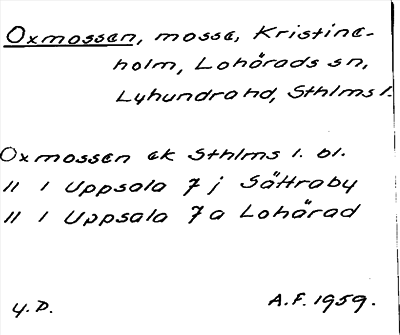 Oxmossen, mosse, Kristine-
holm, Lohärads sn,
Lyhundra hd, Sthlms l.
Oxmossen ek Sthlms l. bl.
" / Uppsala 7 j Sättraby
" / Uppsala 7a Lohärad
Y.D. A.F. 1959.